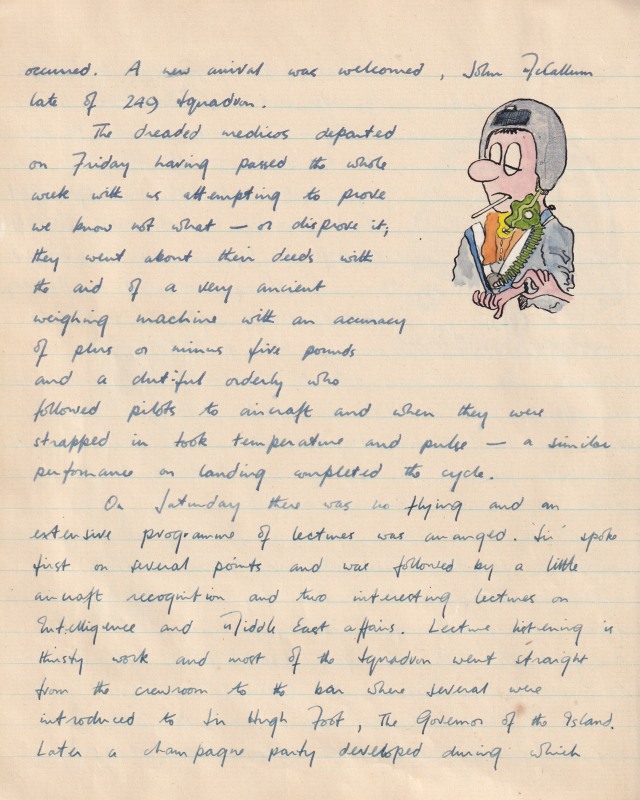 occurred. A new arrival was welcomed, John McCallum
late of 249 Squadron.
The dreaded medicos departed
on Friday having passed the whole
week with us attempting to prove
we know not what – or disprove it;
they went about their deeds with
the aid of a very ancient
weighing machine with an accuracy
of plus or minus five pounds
and a dutiful orderly who
followed pilots to aircraft and when they were
strapped in took temperature and pulse – a similar
performance on landing completed the cycle.
On Saturday there was no flying and an
extensive programme of lectures was arranged. 'Sir' spoke
first on several points and was followed by a little
aircraft recognition and two interesting lectures on
Intelligence and Middle East affairs. Lecture listening is
thirsty work and most of the Squadron went straight
from the crewroom to the bar where several were
introduced to Sir Hugh Foot, The Governor of the Island.
Later a champagne party developed during which